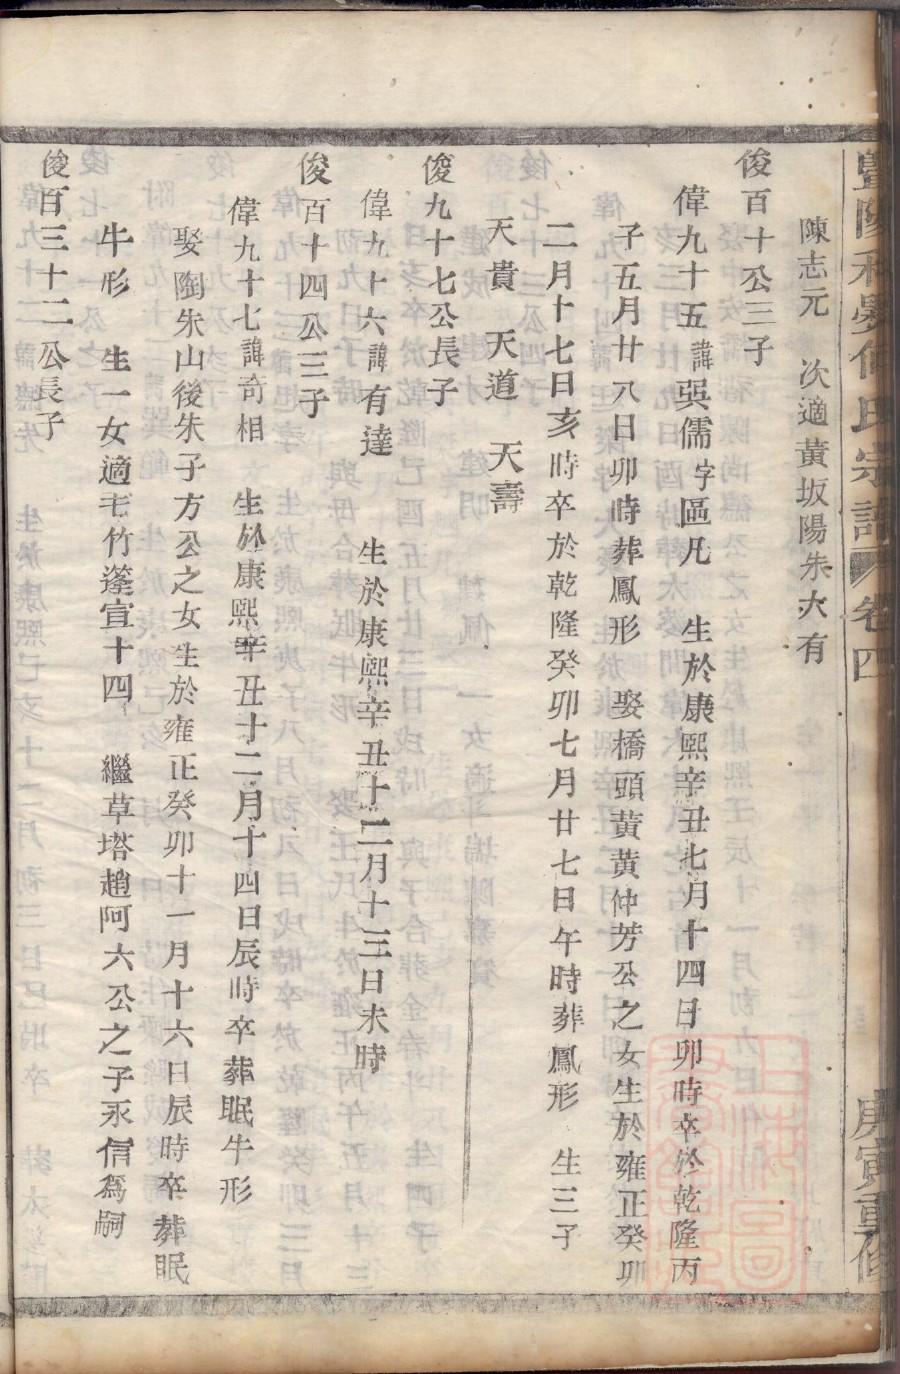 陳志元 次適黃坂陽朱大有
俊百十公三子
偉九十五諱吳儒字區凡 生於康熙辛丑七月十四日卯時卒於乾隆丙
子五月廿八日卯時葬鳳形 娶橋頭黃黃仲芳公之女生於雍正癸卯
二月十七日亥時卒於乾隆癸卯七月廿七日午時葬鳳形 生三子
天貴 天道 天壽
俊九十七公長子
偉九十六諱有達 生於康熙辛丑十二月十三日未時
俊百十四公三子
偉九十七諱奇相 生於康熙辛丑十二月十四日辰時卒葬眠牛形
娶陶朱山後朱子方公之女生於雍正癸卯十一月十六日辰時卒葬眠
牛形 生一女適毛竹蓬宣十四 繼草塔趙阿六公之子永信為嗣
俊百三十二公長子
氏宗譜 卷四 庚寅重修